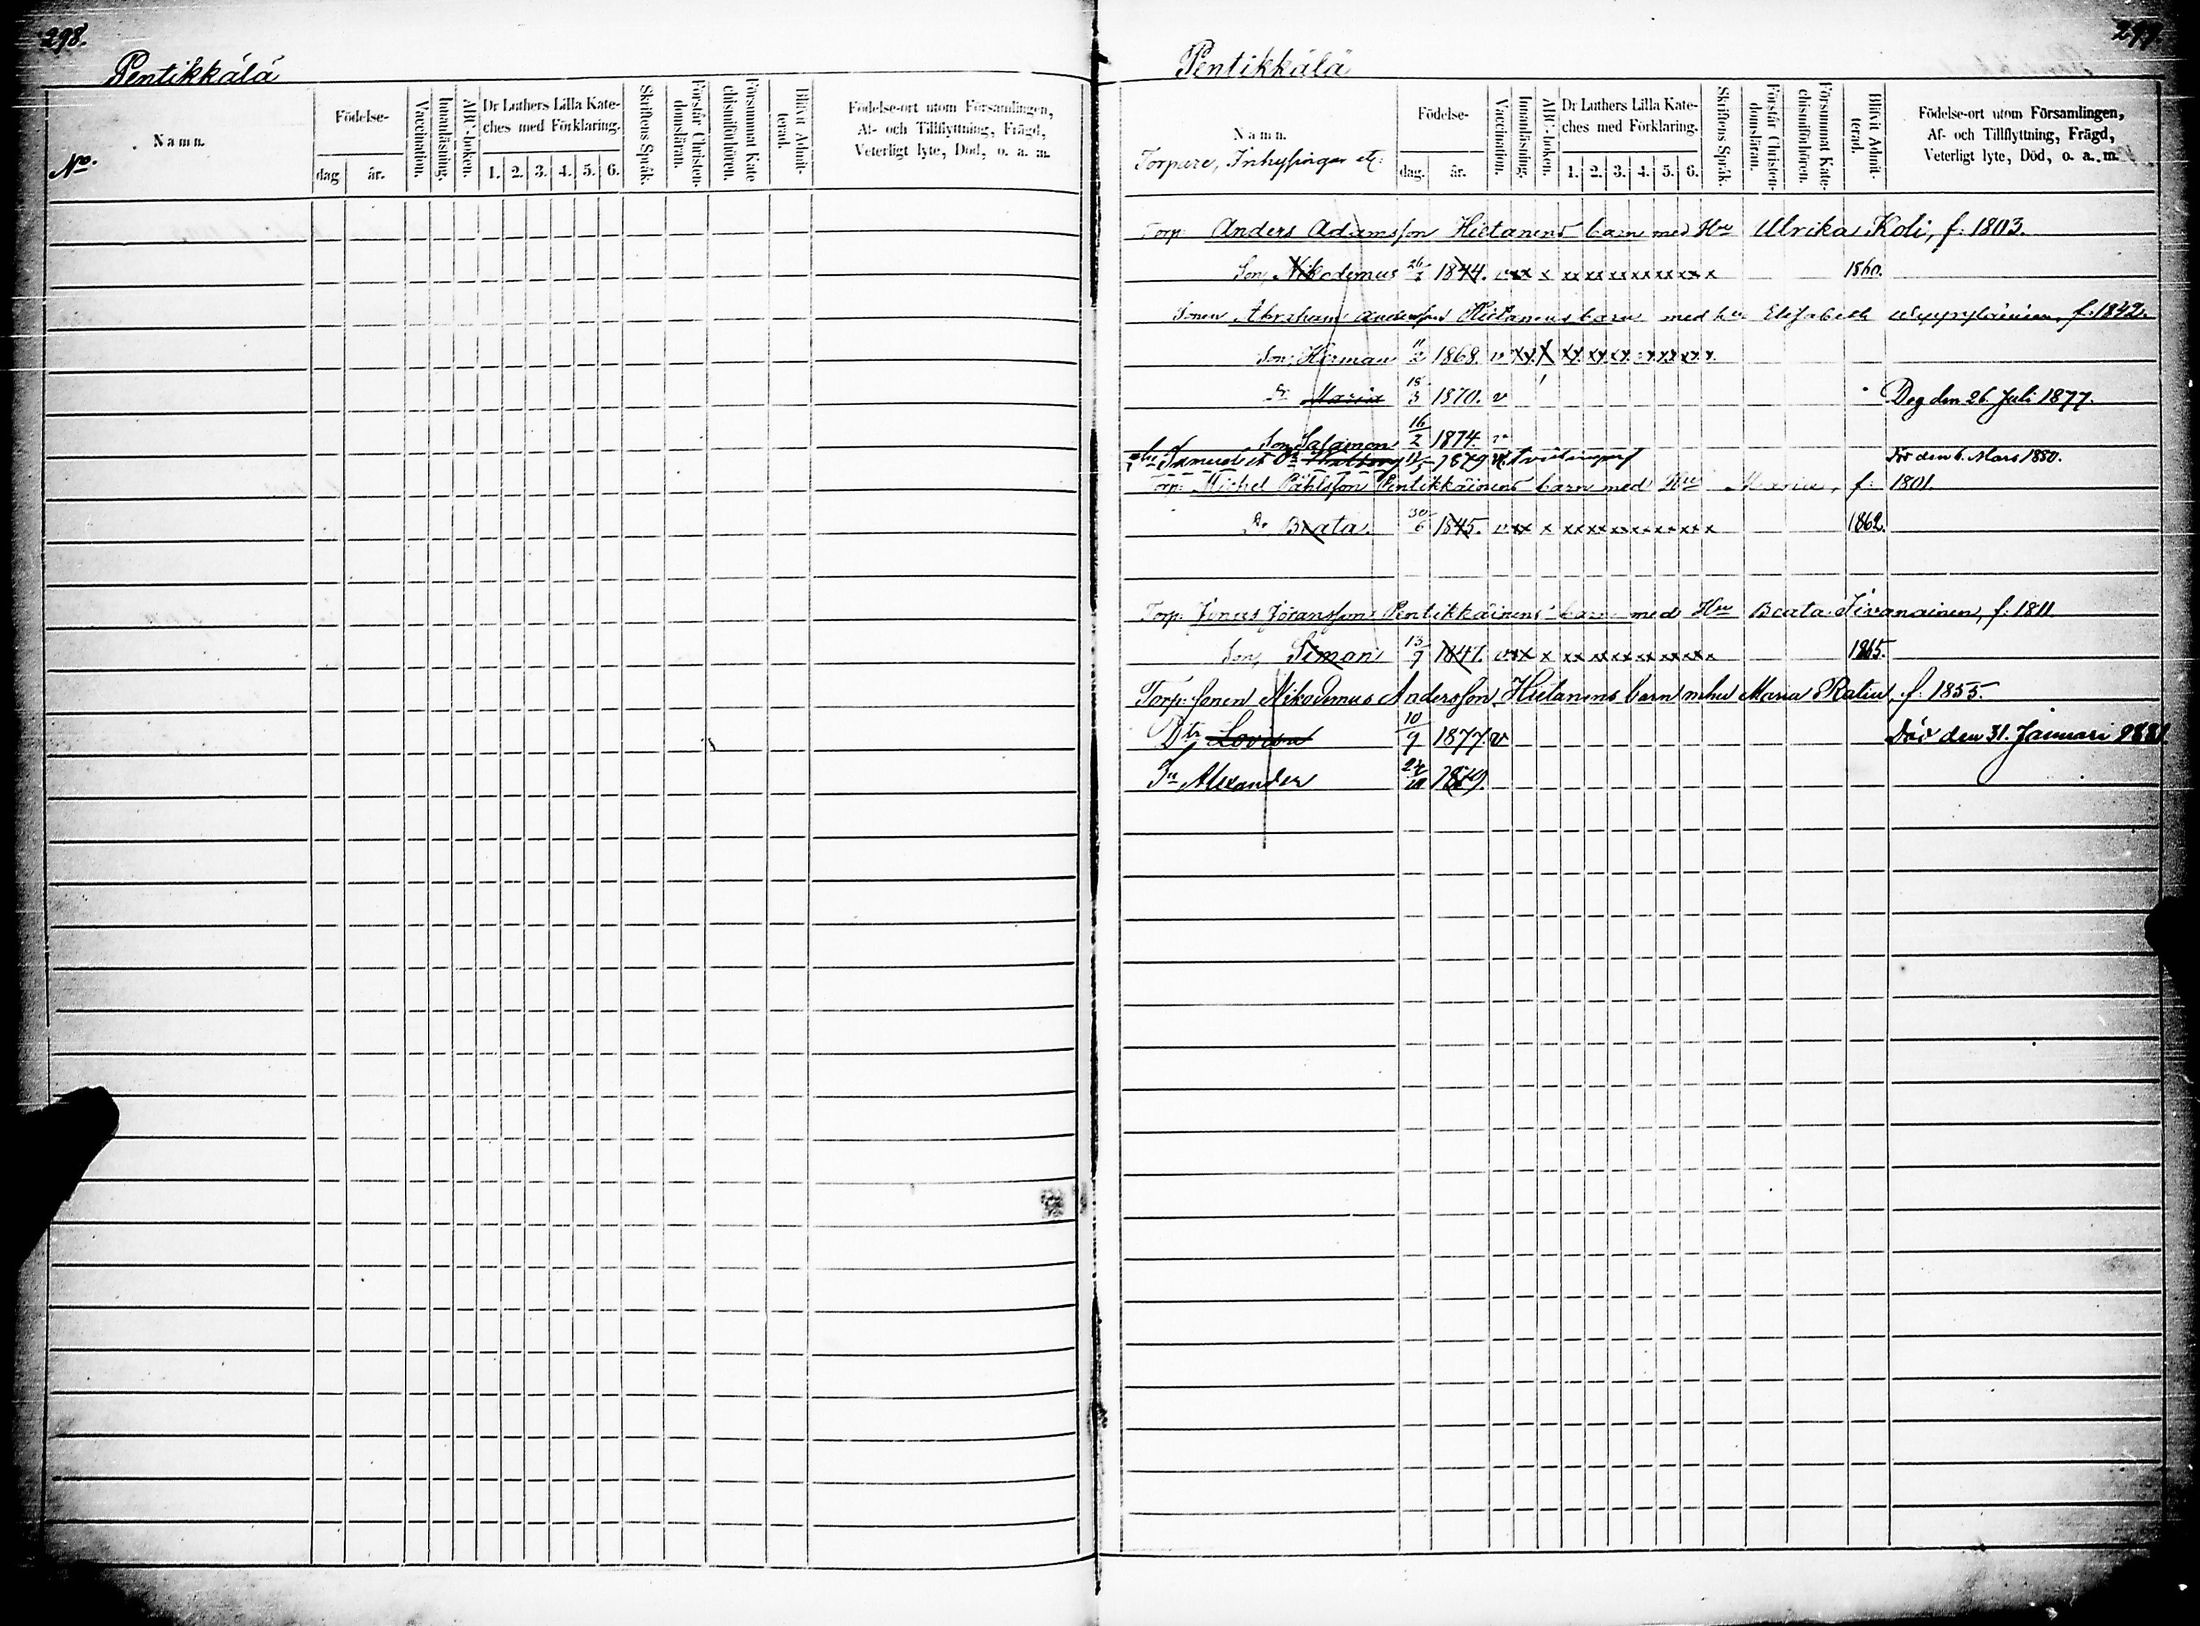 298.
Pentikkälä
No.
Namn.
Födelse-
dag
år.
Vaccination.
Innanläsning.
ABC-boken.
Dr Luthers Lilla Kate-
ches med Förklaring.
1. 2. 3. 4. 5. 6.
Skriftens Språk.
Förstår Christen-
domsläran.
Försummat Kate
chismiförhören.
Blifvit Admit-
terad.
Födelse-ort utom Församlingen,
Af- och Tillflyttning, Frägd,
Veterligt lyte, Död, o. a. m.
299.
Pentikkälä
Namn.
Torpare, Inhysingar etc:
Födelse-
dag.
år.
Vaccination.
Innanläsning.
ABC-boken.
Dr Luthers Lilla Kate-
ches med Förklaring.
1. 2. 3. 4. 5. 6.
Skriftens Språk.
Förstår Christen-
domsläran.
Försummat Kate-
chismiförhören.
Blifvit Admit-
terad.
Födelse-ort utom Församlingen,
Af- och Tillflyttning, Frägd,
Veterligt lyte, Död, o. a. m.
Torp. Anders Adamsson Hietanens barn med Hu Ulrika Koli, f. 1803.
Son, Nikodemus 26/1 1844. v xx x xx xx xx xx xx xx x 1860.
Sonen Abraham Andersson Hietanens barn med hu Elisabeth f. 1842.
Son, Herman 11/2 1868. v
Dr Maria 18/3 1870. v Dog den 26 Juli 1877.
Son Salomon 16/2 1874. v
Samuel et Dr Walborg 1879 Död den 6. Mars 1880.
Torp. Michel Påhlsson Pentikkäinens barn med Hu Maria, f: 1801.
Dr Beata. 30/6 1845. v xx x xx xx xx xx xx xx x 1862.
Torp. Jöransson Pentikkäinens barn med Hu Beata Tivanainen, f. 1811
Son, Simon 13/9 1847. v xx x xx xx xx xx xx xx x 1865.
Torp. sonen Nikodemus Andersson Hietanens barn mhu Maria Ratin, f. 1855.
Dtr Lovisa 10/9 1877. v Död den 31. Januari 1881.
Sn Alexander 1879.